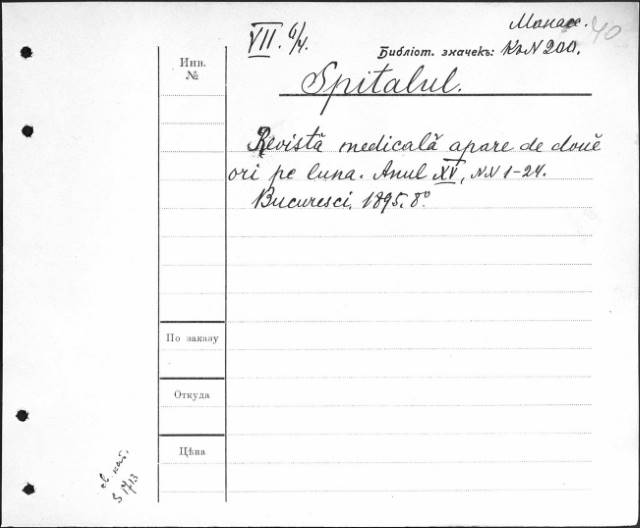 VII. 6/4.
40
Библіот. значекъ: Кз N 200.
Инв.
№
Spitalul.
Revistă medicală apare de douĕ
ori pe luna. Anul XV, NN 1-24.
Bucuresci, 1895. 8°
По заказу
Откуда
Цѣна